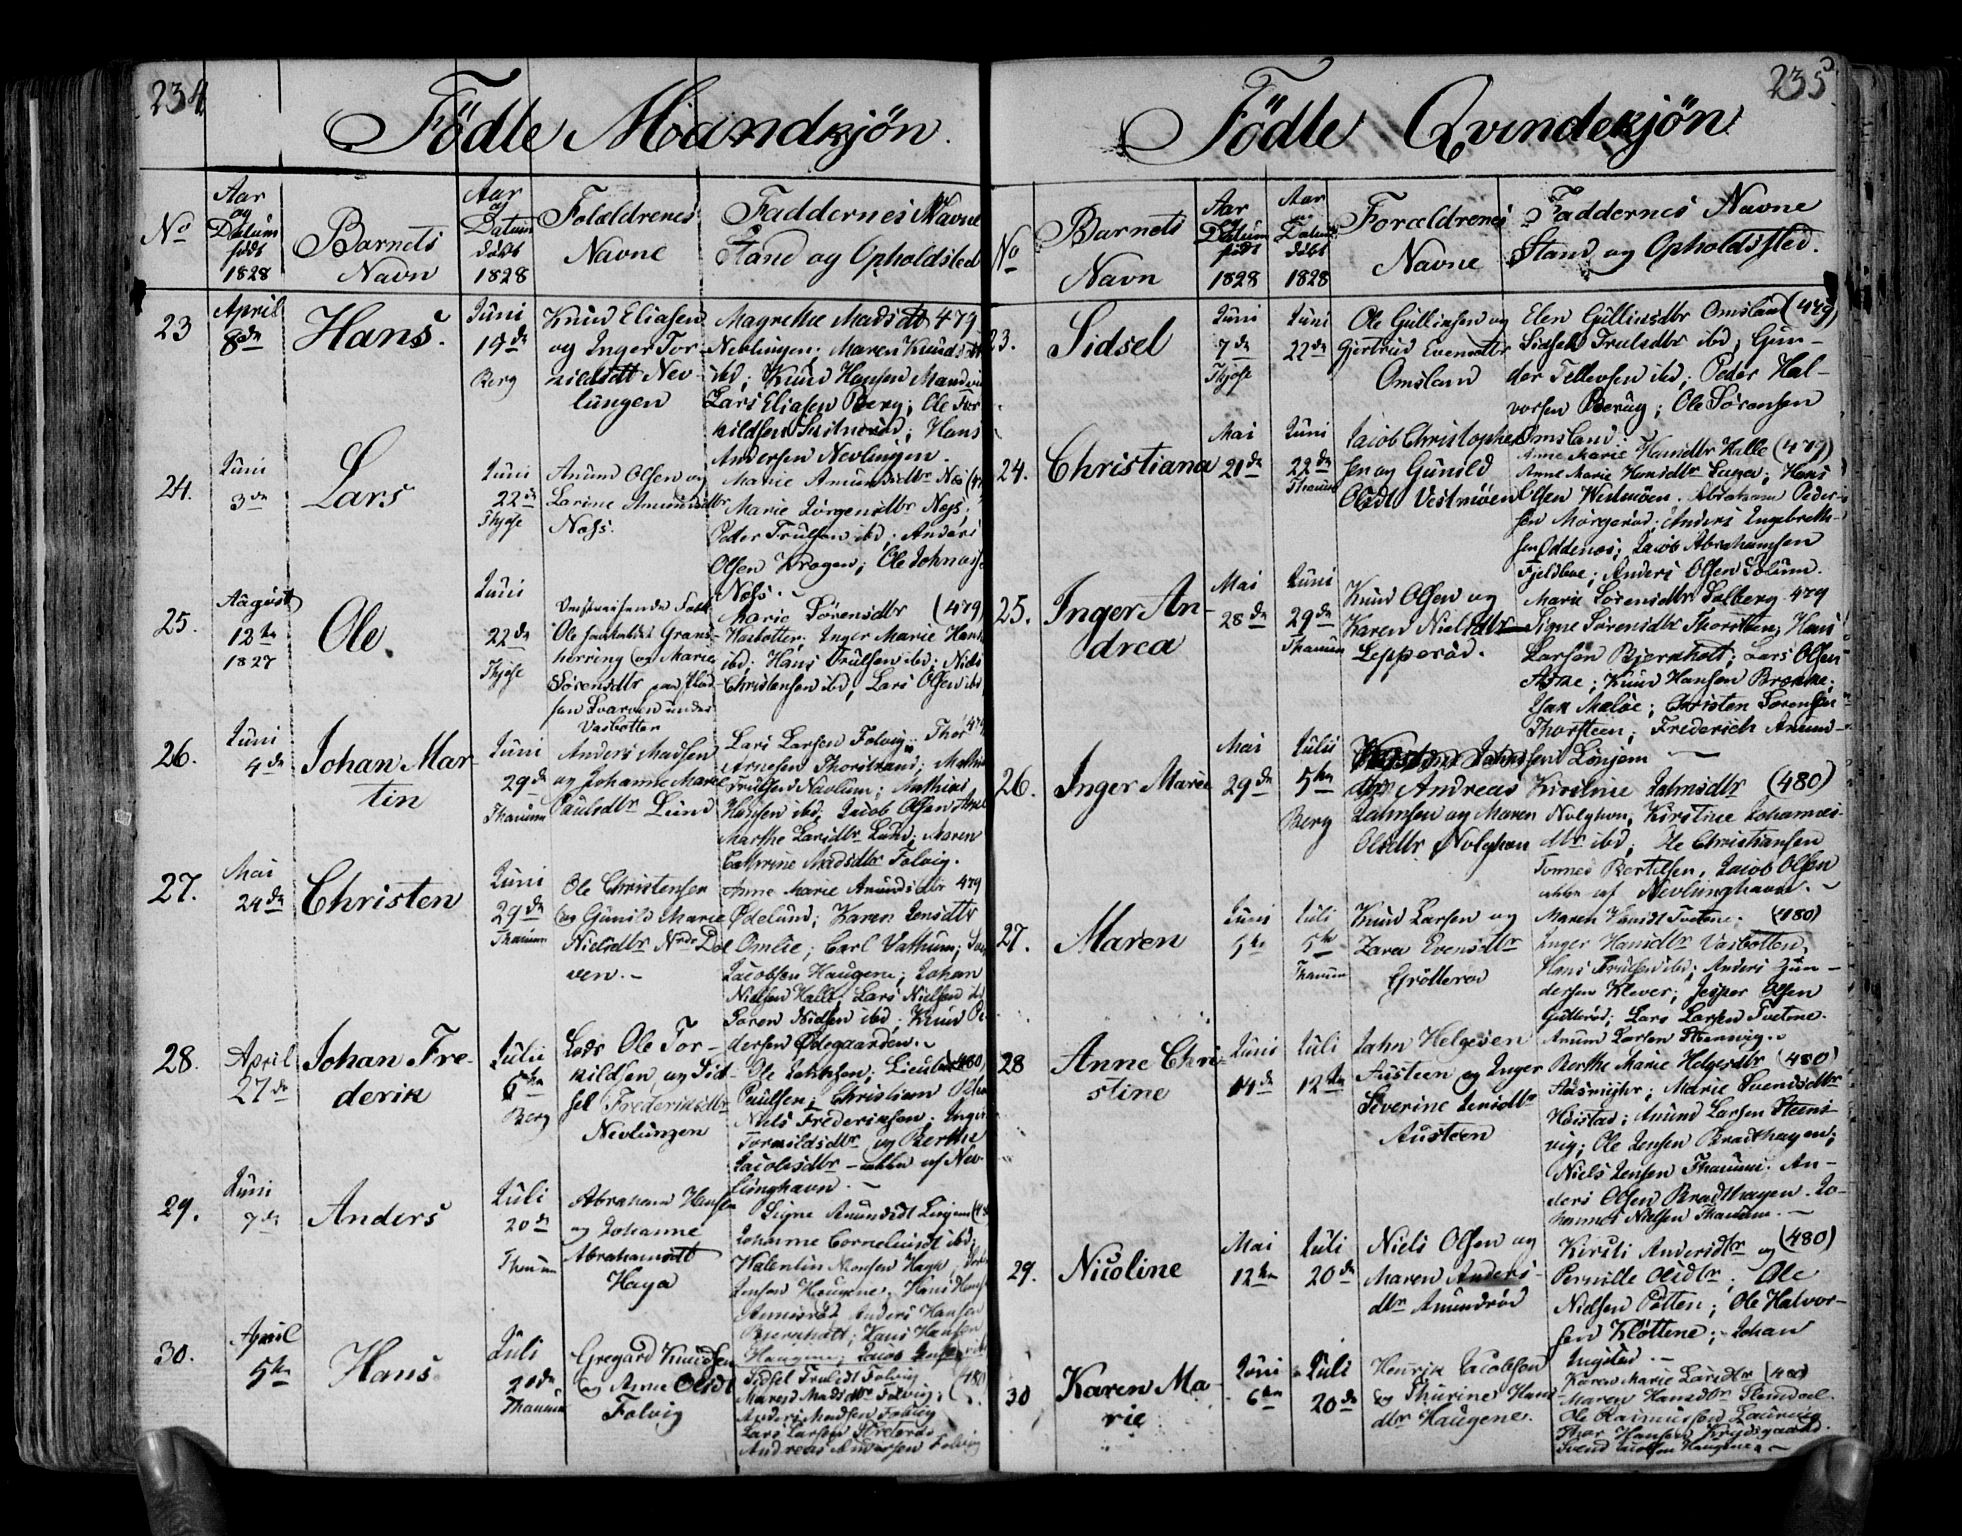 234
Födte Mandkjön.
No
Aar og Datum født 1828
Barnets Navn
Aar og Datum døbt 1828
Foældrenes Navne
Faddernes Navne Stand og Opholdsted
23
April 8de
Hans.
Juni 15de Berg
Knud Eliasen
og Inger Tor-
kildsdt Nev-
lungen
Magrethe Madsdtr 479
Nevlungen; Maren Knudsdt
ibd; Knud Hansen Mandvi
Lars Eliasen Berg; Ole Tor
kildsen ; Hans
Andersen Nevlungen.
24.
Juni 3de
Lars
Juni 22de Thjøse
Anund Olsen og
Larine Amundsdtr
Næss.
Marie Amundsdtr Næs
Marie Jörgensdtr Næss.
Peder Trulsen ibd; Anders
Olsen Krogen; Ole Johnass
Næss.
25.
August 12te 1827
Ole.
Juni 22de Thjøse
Omstreifende Folk
Ole Grans-
herring og Marie
Sörensdtr paa Plad-
sen Svarven under
Vasbotten
Marie Sörensdtr (479)
Vasbotten; Inger Marie Hans
ibd; Hans Trulsen ibd; Niels
Christensen ibd; Lars Olsen ibd
26.
Juni 4de
Johan Mar-
tin
Juni 29de Thanum
Anders Madsen
og Johanne Marie
Paulsdtr Lund
Lars Larsen Folvig; Thor 479
Arnesen Thorstrand; Mathis
Trulsen Navlum; Mathias
Hansen ibd; Jacob Olsen
Marthe Larsdtr Lund; Maren
Cathrine Madsdtr Folvig.
27.
Mai 24de
Christen
Juni 29de Thanum
Ole Christensen
og Gunild Marie
Nielsdtr Nrdr Dol
ven.
Anne Marie Anundsdtr 479
Ödelund; Karen Jensdtr
Omlie; Carl Vathum;
Jacobsen Haugene; Johan
Nielsen Halle; Lars Nielsen ibd
Sören Nielsen ibd; Knud Pe
dersen Ödegaarden.
28.
April 27de
Johan Fre-
derik
Julii 6te Berg
Lods Ole Tor-
kildsen og Sid-
sel Frederiksdtr
Nevlungen
Ole Johnsen; Lieutn (480)
Paulsen; Christian
Niels Frederiksen; Inger
Tormildsdtr og Berthe
Jacobsdtr – alle af Nev-
lunghavn.
29.
Juni 7de
Anders
Juli 20de Thanum
Abraham Hansen
og Johanne
Abrahamsdtr
Haga
Signe Amundsdt Linjem
Johanne Corneliusdt ibd;
Halentin Monsen Haga;
Jensen Haugene; Hans Hans
Anders Hansen
Bjernholt; Hans Hansen
Haugene; Jacob
30.
April 5te
Hans
Juli 20de Thanum
Gregard Knudsen
og Anne Olsdt
Folvig
Sidsel Trulsdt Folvig
Maren Madsdtr Folvig; (480)
Anders Madsen Folvig
Lars Larsen
Andreas Andersen Folvig
235
Födte Qvindekjön
No
Barnets Navn
Aar og Datum født 1828
Aar Datum døbt 1828
Forældrenes Navne
Faddernes Navne
Stand og Opholdssted.
23.
Sidsel
Juni 7de Thjøse
Juni 22de
Ole Gullinsen og
Gjertrud Evensdtr
Omsland
Elen Gullinsdtr Omsland (479)
Sidsel Trulsdtr ibd; Gun-
der Tellevsen ibd; Peder Hal-
vorsen Berug; Ole Sörensen
Omsland.
24.
Christiana
Mai 21de
Juni 22de Thanum
Jacob Christopher
sen og Gunild
Olsdt Vestmöen
Anne Marie Hansdtr Halle (479)
Anne Marie Hansdtr ; Hans
Olsen Westmöen. Abraham Peder-
sen Mörgeröd; Anders Engebreth-
sen Oddenes; Jacob Abrahamsen
Fjeldbae; Anders Olsen Solum.
25.
Inger An-
drea
Mai 28de
Juni 29de Thanum
Knud Olsen og
Karen Nielsdtr
Lepperöd.
Marie Sörensdtr Solberg 479
Signe Sörensdtr Thorsteen; Hans
Larsen Bjernholt; Lars Olsen
Aske; Knud Hansen Brekke;
Jan Maløe; Christen Sörensen
Thorsteen; Frederich Amund-
sen Linjem
26.
Inger Marie
Mai 29de
Julii 5te Berg
Andreas
Jahnsen og Maren
Olsdtr Nvlghvn
Kirstine Jahnsdtr (480)
Nvlghvn; Kirstine Johannes-
dtr ibd; Ole Christiansen
Tönnes Bertelsen, Jacob Olsen
alle af Nevlunghavn.
27.
Maren
Juni 5te
Juli 5te Thanum
Knud Larsen og
Zara Evensdtr
Gröteröd
Maren Knudsdt Tvetene. (480)
Inger Hansdtr Vasbotten,
Hans Trulsen ibd; Anders Gun-
dersen Klever; Jesper Olsen
; Lars Larsen Tvetene.
Anum Larsen Stenvig.
28
Anne Chri-
stine
Juni 14de
Juli 12te
Jahn Helgesen
Austeen og Inger
Severine Jensdtr
Austeen
Berthe Marie Helgesdtr (480)
; Marie Svendsdtr
Höistad; Anund Larsen Steens-
vig; Ole Jensen Bradthagen;
Niels Jensen Thanum. An-
ders Olsen Bradthagen. Jo-
hannes Nielsen Thanum.
29.
Nicoline
Mai 12te
Juli 20de
Niels Olsen og
Maren Anders-
dtr Amundröd
Kirsti Andersdtr og (480)
Pernille Olsdtr; Ole
Nielsen Potten; Ole Halvor-
sen Klöttene; Johan
Ingstad.
30
Karen Ma-
rie
Juni 6te
Juli 20de
Henrik Jacobsen
og Thurine Hans
dtr Haugene.
Karen Marie Larsdtr (480)
Maren Hansdtr Stendal
Ole Rasmussen Laurvig
Thor Hansen Krydsgaard.
Svend Jacobsen Haugene.